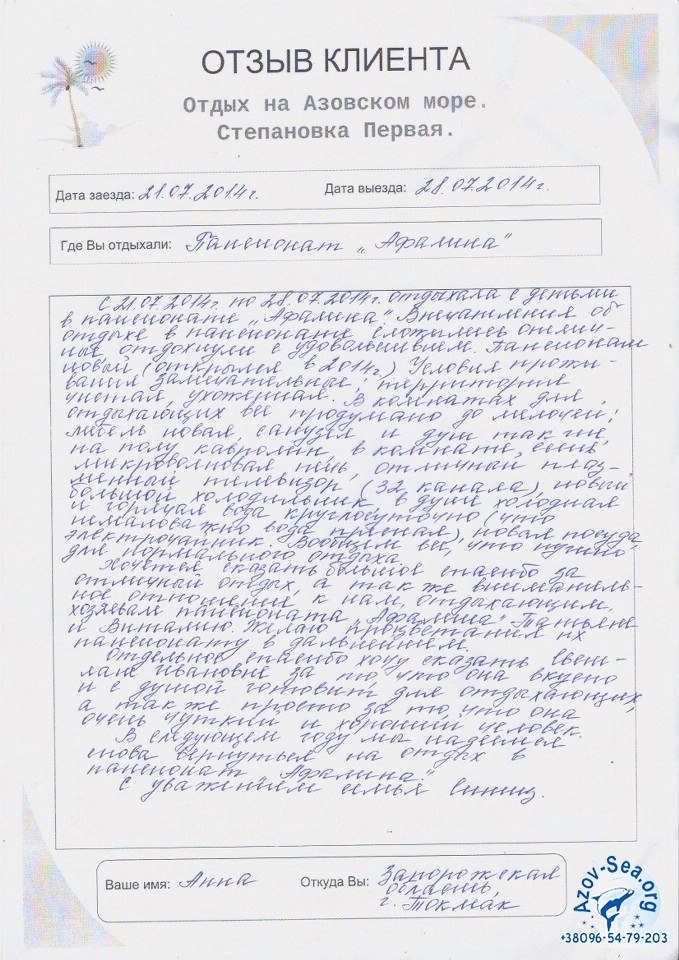 ОТЗЫВ КЛИЕНТА
Отдых на Азовском море.
Степановка Первая.
Дата заезда: 21.07.2014г. Дата выезда: 28.07.2014г.
Где Вы отдыхали: Пансионат „Афалина"
С 21.07.2014г. по 28.07.2014г. отдыхала с детьми
в пансионате „Афалина" Впечатления об
отдыхе в пансионате сложились отлич-
ные отдохнули с удовольствием. Пансионат
новый (открылся в 2014г.) Условия прожи-
вания замечательные; территория
чистая, ухоженная. В комнатах для
отдыхающих все продумано до мелочей;
мебель новая, санузел и душ так же,
на полу кавролин, в комнате, есть
микроволновая печь, отличный плаз-
менный телевизор (32 канала), новый
большой холодильник в душе холодная
и горячая вода круглосуточно (что
немаловажно вода пресная), новая посуда
электрочайник. Вообщем вы, что нужно
для нормального отдыха.
Хочется сказать большое спасибо за
отличный отдых, а так же вниматель-
ное отношение к нам, отдыхающим,
хозяевам пансионата „Афалина" Татьяне
и Виталию. Желаю процветания их
пансионату в дальнейшем.
Отдельное спасибо хочу сказать Свет-
лане Ивановне за то, что она вкусно
и с душой готовит для отдыхающих,
а так же просто за то, что она
очень чуткий и хороший человек.
В следующем году мы надеемся
снова вернуться на отдых в
пансионат „Афалина".
С уважением семья Синиц.
Ваше имя: Анна Откуда Вы: Запорожская
область,
г. Токмак
Azov-Sea.org
+38096-54-79-203